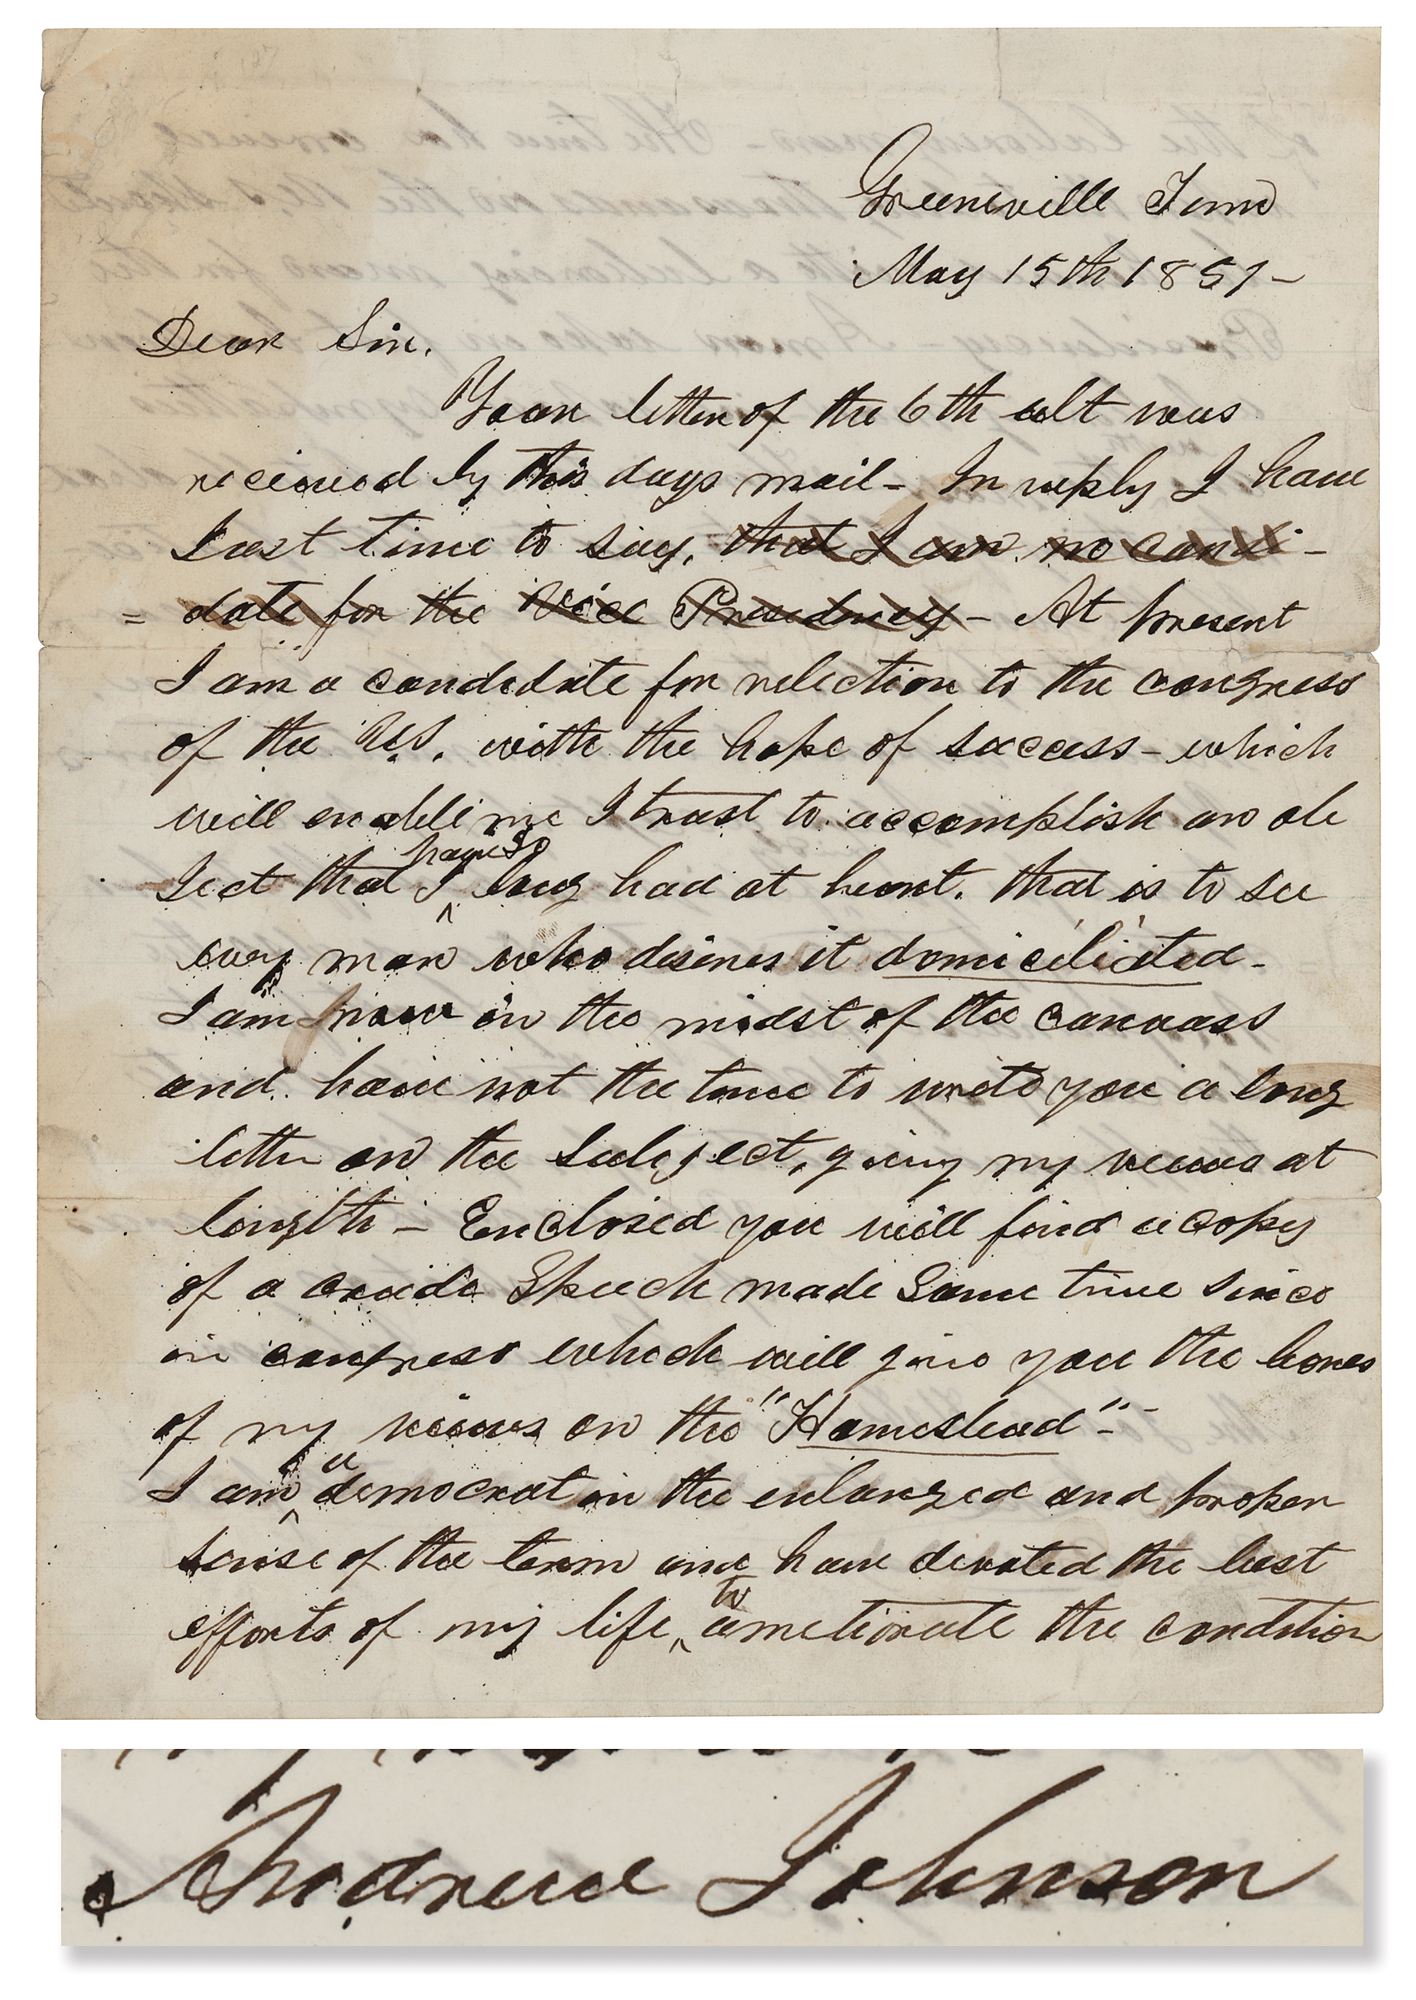 Greeneville Tenn
May 15th 1851-
Dear Sir.
Your letter of the 6th ult was
received by this days mail- In reply I have
Just time to say, that I am no candi-
= date for the Vice Presidency - At present
I am a candidate for relection to the congress
of the U.S. with the hope of success - which
will enable me I trust to accomplish an ob
Ject that I have so long had at heart. that is to see
every man who desires it domiciliated-
I am now in the midst of the canvass
and have not the time to write you a long
letter on the Subject, giving my views at
length - Enclosed you will find a copy
of a crude Speech made Some time since
in congress which will give you the bones
of my views on the "Homestead"-
I am a democrat in the enlarged and proper
sense of the term and have devoted the best
efforts of my life, to ameliorate the condition
Andrew Johnson